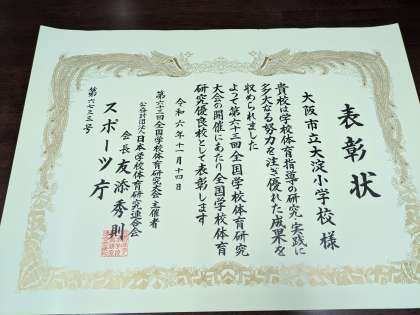 表彰状
大阪市立大淀小学校 様
貴校は学校体育指導の研究・実践に
多大なる努力を注ぎ優れた成果を
収められました
よって第六十三回全国学校体育研究
大会の開催にあたり全国学校体育
研究優良校として表彰します
令和六年十一月十四日
第六十三回全国学校体育研究大会主催者
公益財団法人日本学校体育研究連合会
会長 友添秀則
スポーツ庁
第六七三三号